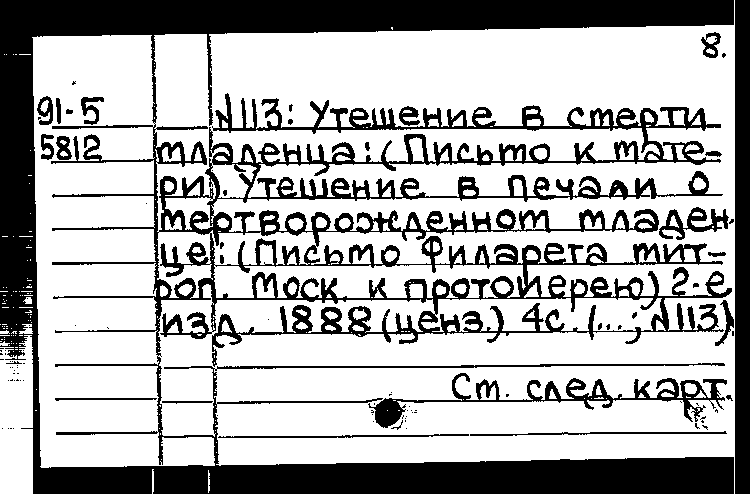 8.
91-5 №113: Утешение в смерти
5812 младенца: (Письмо к мате-
ри). Утешение в печали о
мертворожденном младен-
це: (Письмо Филарета мит-
роп. Моск. к протоиерею) 2-е
изд. 1888 (ценз.). 4с. (...; №113)
См. след. карт.